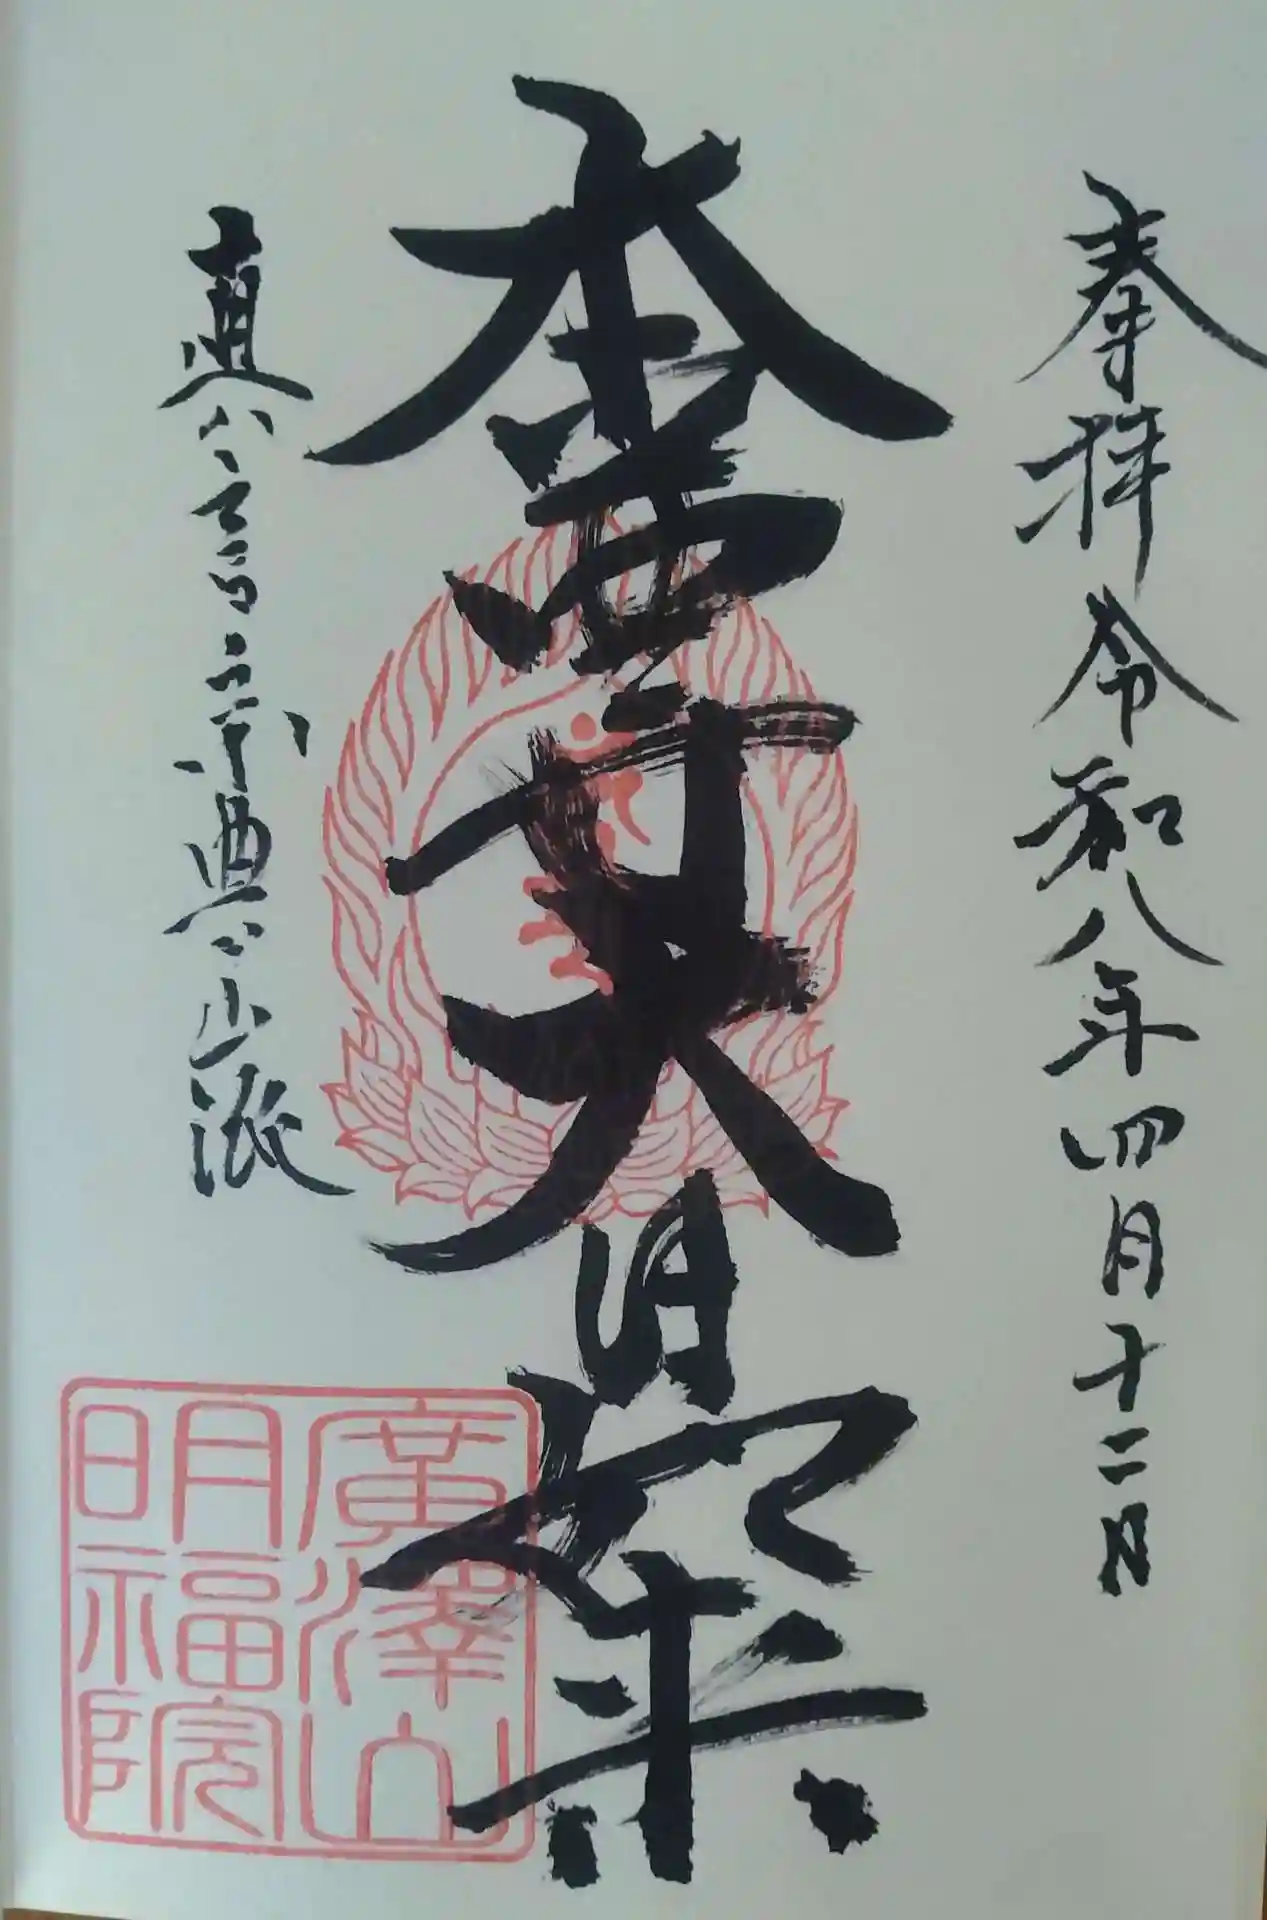 奉拝 令和八年四月十二日
本尊大日如来
真言宗豊山派
廣澤山
明福院